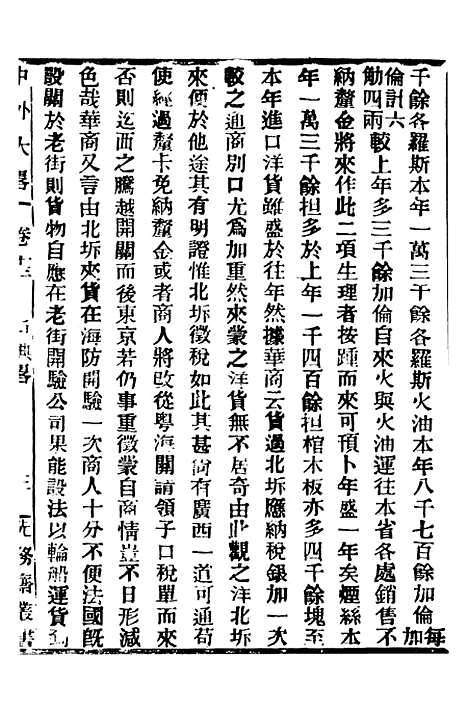 千餘各羅斯本年一萬三千餘各羅斯火油本年八千七百餘加倫每加
倫計六觔四兩較上年多三千餘加倫自來火與火油運往本省各處銷售不
納釐金將來作此二項生理者按踵而來可預卜年盛一年矣煙絲本
年一萬三千餘担多於上年一千四百餘担棺木板亦多四千餘塊至
本年進口洋貨雖盛於往年然據華商云貨過北圻應納稅銀加一次
較之通商別口尤為加重然來蒙之洋貨無不居奇由此觀之洋北圻
來便於他途其有明證惟北圻徵稅如此其甚尚有廣西一道可通苟
使經過釐卡免納釐金或者商人將改從粵海關請領子口稅單而來
否則迄西之騰越開關而後東京若仍事重徵蒙自商情豈不日形減
色哉華商又言由北圻來貨在海防開驗一次商人十分不便法國旣
設關於老街則貨物自應在老街開驗公司果能設法以輪船運貨到
中外大畧 卷十三 三 尢務齋叢書